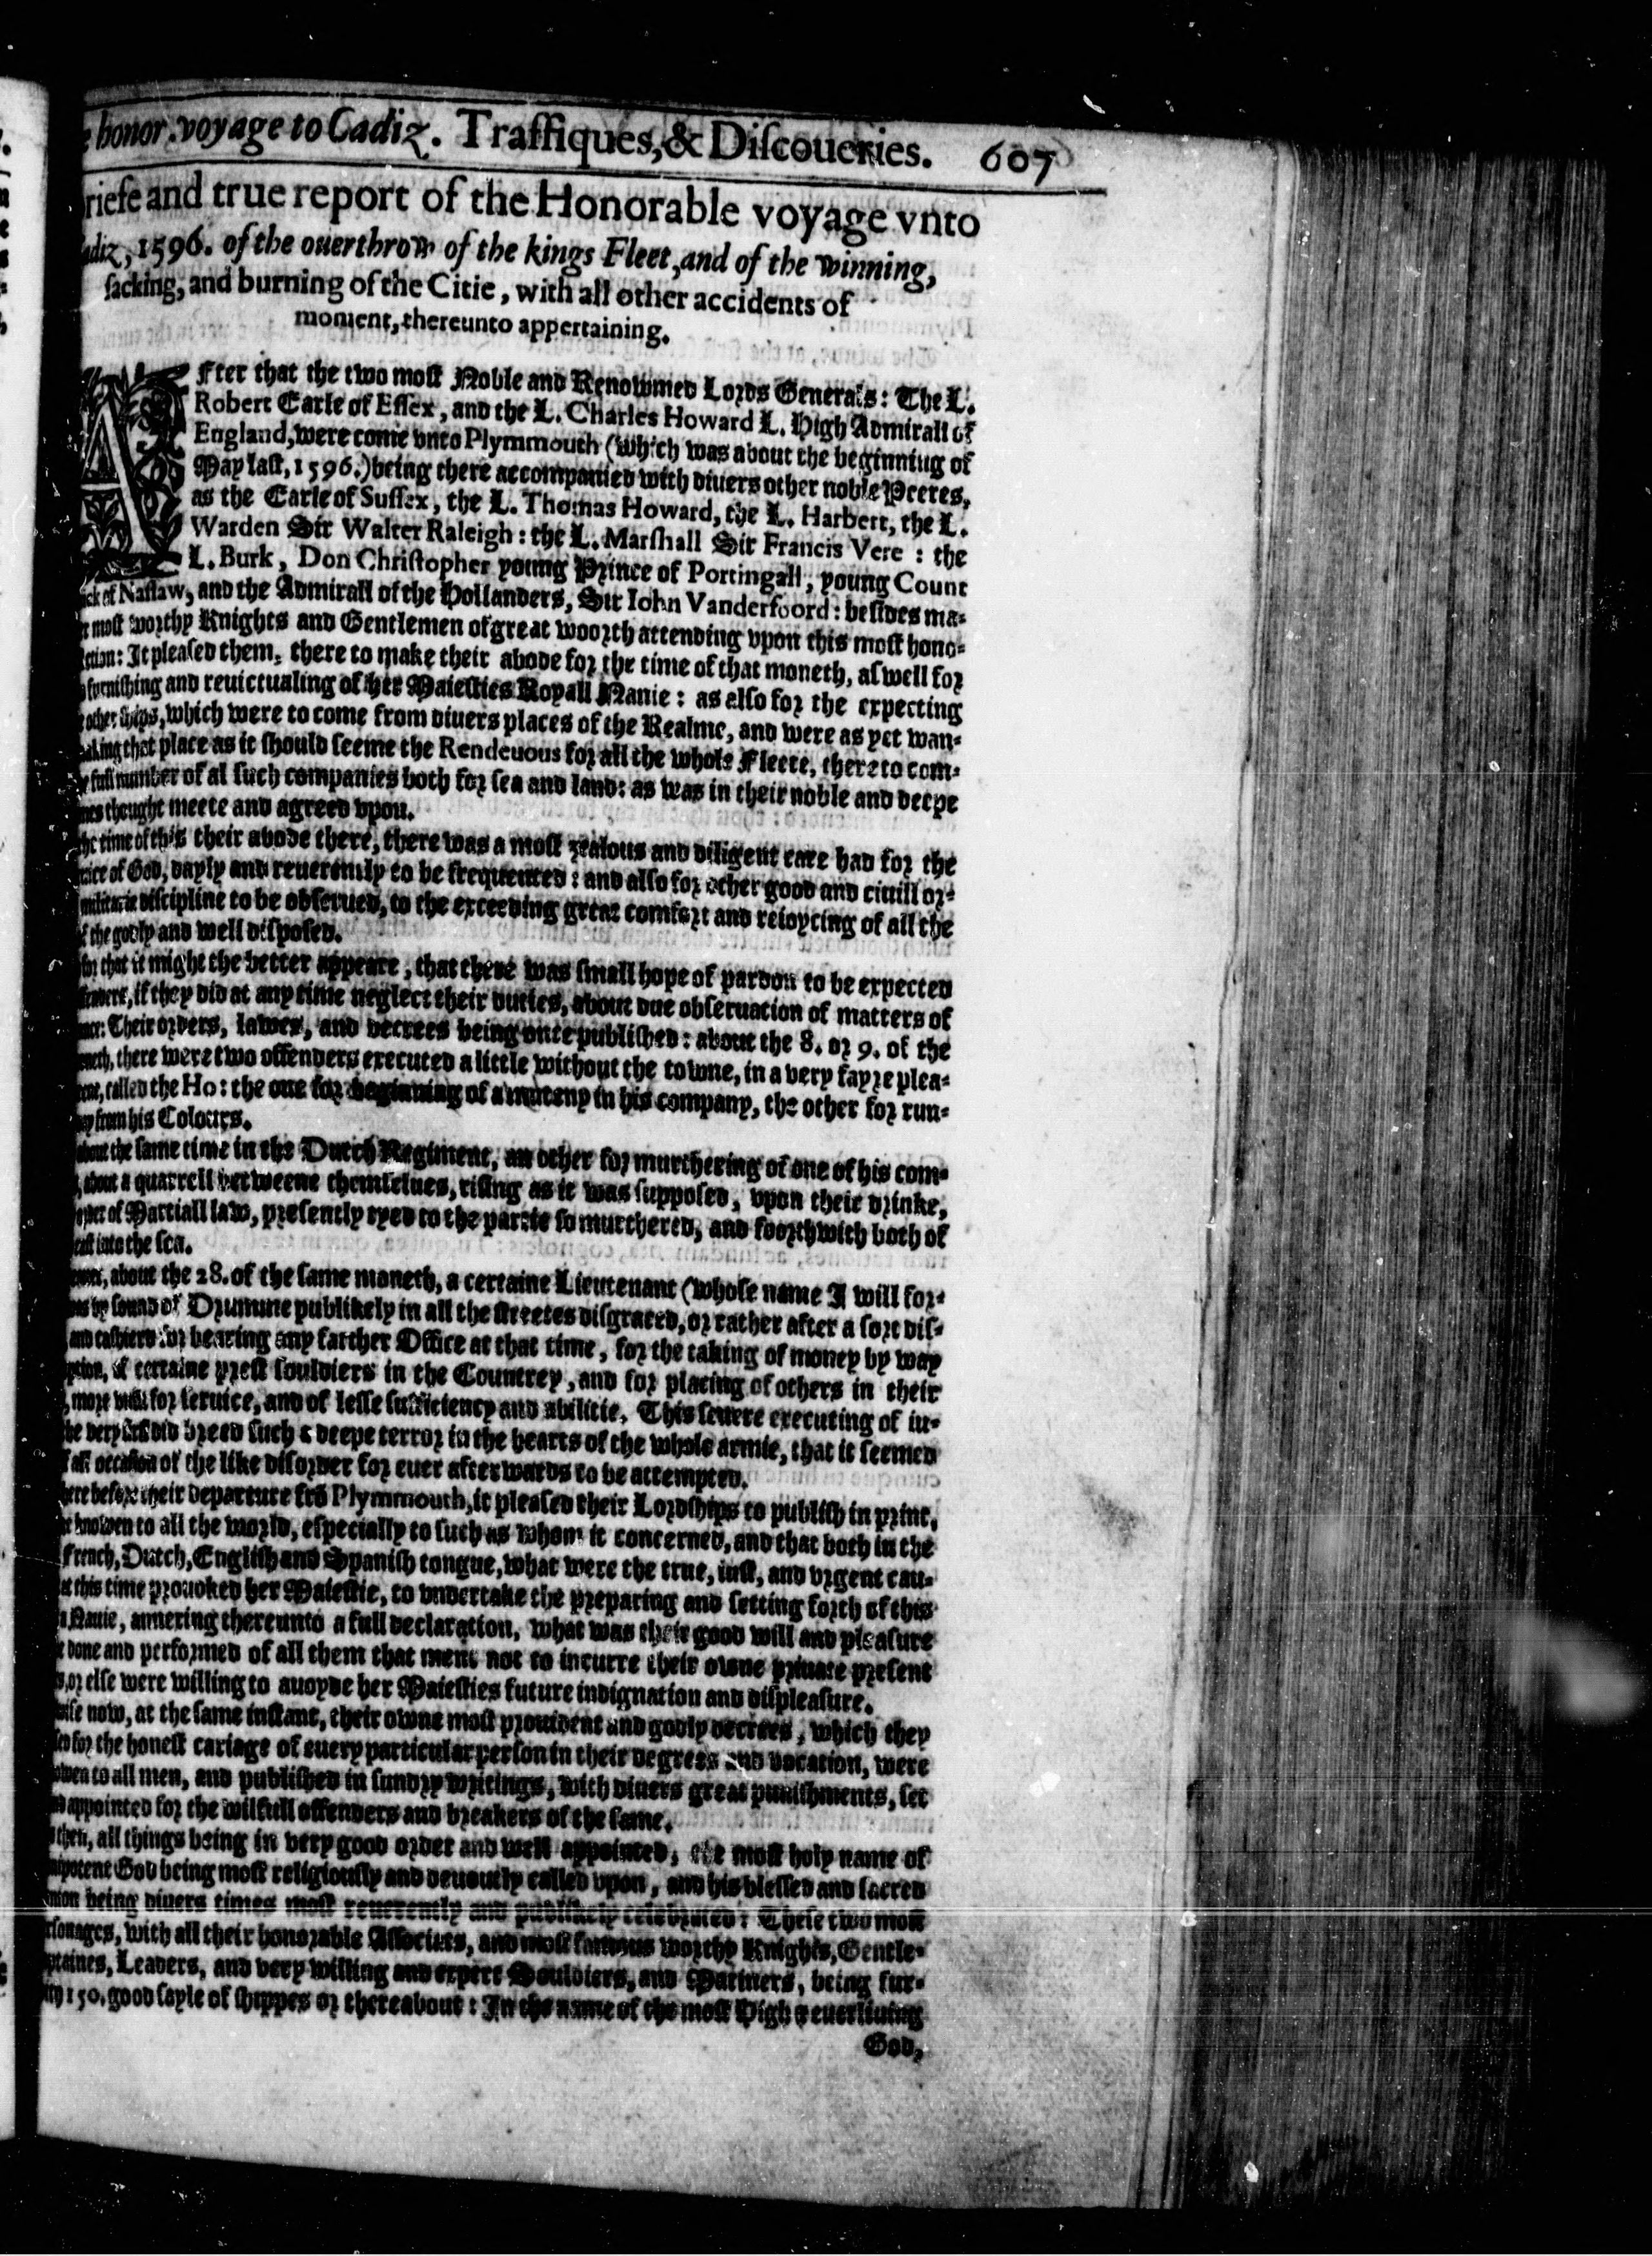 honor. voyage to Cadiz. Traffiques, & Discoueries. 607
riefe and true report of the Honorable voyage vnto
adiz, 1596. of the ouerthrow of the kings Fleet, and of the winning,
sacking, and burning of the Citie, with all other accidents of
moment, thereunto appertaining.
AFter that the two most Noble and Renowmed Lords Generals: The L.
Robert Earle of Essex, and the L. Charles Howard L. High Admirall of
England, were come vnto Plymmouth (which was about the beginning of
May last, 1596.) being there accompanied with diuers other noble Peeres,
as the Earle of Sussex, the L. Thomas Howard, the L. Harbert, the L.
Warden Sir Walter Raleigh: the L. Marshall Sir Francis Vere: the
L. Burk, Don Christopher young Prince of Portingall, young Count
ick of Nassaw, and the Admirall of the Hollanders, Sir Iohn Vanderfoord: besides ma-
most worthy Knights and Gentlemen of great woorth attending vpon this most hono-
ction: It pleased them, there to make their abode for the time of that moneth, aswell for
furnishing and reuictualing of her Maiesties Royall Nauie: as also for the expecting
other ships, which were to come from diuers places of the Realme, and were as yet wan-
aking that place as it should seeme the Rendeuous for all the whole Fleete, there to com-
full number of al such companies both for sea and land: as was in their noble and deepe
mes thought meete and agreed vpon.
the time of this their abode there, there was a most zealous and diligent care had for the
uice of God, dayly and reuerently to be frequented: and also for other good and ciuill or-
militarie discipline to be obserued, to the exceeding great comfort and reioycing of all the
the godly and well disposed.
for that it might the better appeare, that there was small hope of pardon to be expected
if they did at any time neglect their duties, about due obseruation of matters of
nce: Their orders, lawes, and decrees being once published: about the 8. or 9. of the
neth, there were two offenders executed a little without the towne, in a very fayre plea-
called the Ho: the one for beginning of a muteny in his company, the other for run-
ay from his Colours.
about the same time in the Dutch Regiment, an other for murthering of one of his com-
about a quarrell betweene themselues, rising as it was supposed, vpon their drinke,
order of Martiall law, presently tyed to the partie so murthered, and foorthwith both of
cast into the sea.
about the 28. of the same moneth, a certaine Lieutenant (whose name I will for-
by sound of Drumme publikely in all the streetes disgraced, or rather after a sort dis-
and cashierd for bearing any farther Office at that time, for the taking of money by way
ption, of certaine prest souldiers in the Countrey, and for placing of others in their
more vnfit for seruice, and of lesse sufficiency and abilitie. This seuere executing of iu-
the very first did breed such a deepe terror in the hearts of the whole armie, that it seemed
all occasion of the like disorder for euer afterwards to be attempted.
here before their departure frō Plymmouth, it pleased their Lordships to publish in print,
knowen to all the world, especially to such as whom it concerned, and that both in the
French, Dutch, English and Spanish tongue, what were the true, iust, and vrgent cau-
at this time prouoked her Maiestie, to vndertake the preparing and setting forth of this
Nauie, annexing thereunto a full declaration, what was their good will and pleasure
done and performed of all them that ment not to incurre their owne priuate present
or else were willing to auoyde her Maiesties future indignation and displeasure.
wise now, at the same instant, their owne most prouident and godly decrees, which they
for the honest cariage of euery particular person in their degrees and vocation, were
owen to all men, and published in sundry writings, with diuers great punishments, set
appointed for the wilfull offenders and breakers of the same.
then, all things being in very good order and well appointed, the most holy name of
nipotent God being most religiously and deuoutly called vpon, and his blessed and sacred
nion being diuers times most reuerently and publikely celebrated: These two most
rsonages, with all their honorable Associats, and most famous worthy Knights, Gentle-
ptaines, Leaders, and very willing and expert Souldiers, and Mariners, being fur-
150. good sayle of shippes or thereabout: In the name of the most High & euerliuing
God,